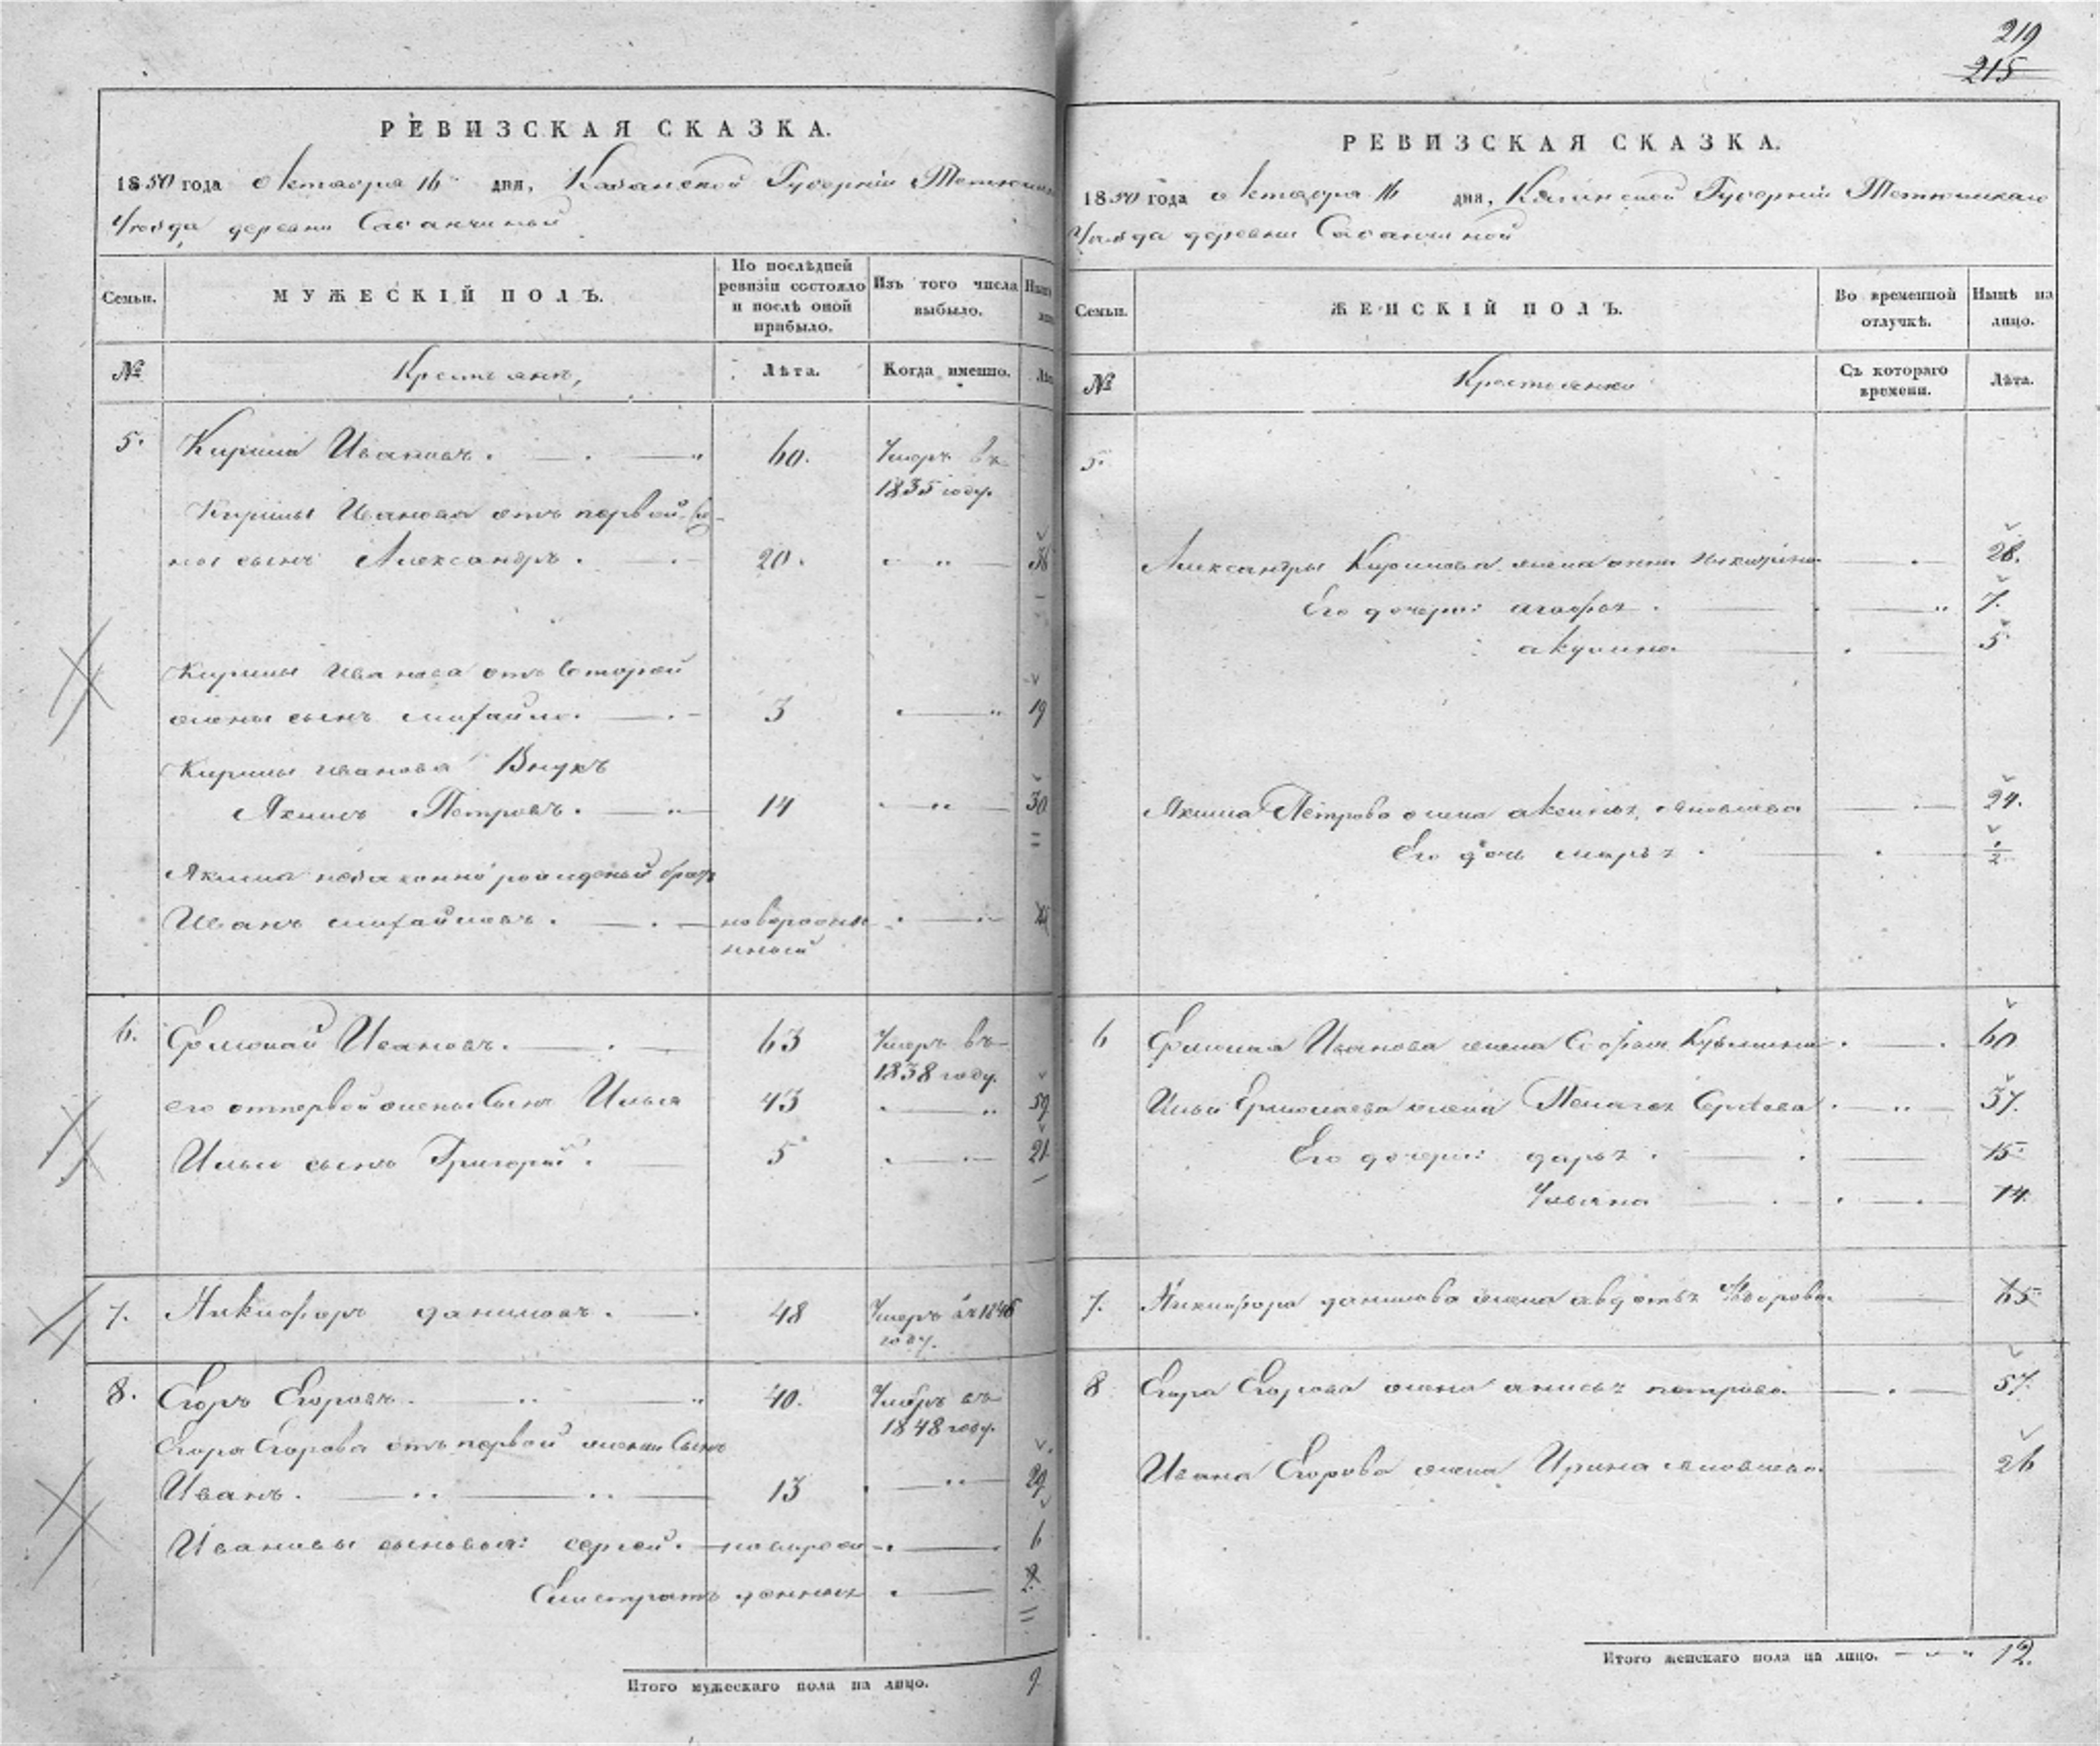 219
215
РЕВИЗСКАЯ СКАЗКА.
1850 года Октября 16 дня, Казанской Губернiи
Уѣзда деревни Саванчиной
Семьи.
МУЖЕСКIЙ ПОЛЪ.
По послѣдней ревизiи состояло и послѣ оной прибыло.
Изъ того числа выбыло.
№
Крестьяне,
Лѣта.
Когда именно.
5. Кирила Ивановъ. 60. Умеръ въ
1835 году.
Кирилы Иванова отъ первой же-
ны сынъ Александръ. 20. 36
Кирилы Иванова отъ второй
жены сынъ Михайло. 3 19
Кирилы Иванова Внукъ
Якимъ Петровъ. 14 30
Якима незаконно рожденый братъ
Иванъ Михайловъ. новорожде
нный
6. Ермолай Ивановъ. 63 Умеръ въ
1838 году.
его отпервой жены Сынъ Илья 43 59
Ильи сынъ Григорей. 5 21
7. Никифоръ Даниловъ. 48 Умеръ въ 1846
году.
8. Егоръ Егоровъ. 40. Умеръ въ
1848 году.
Егора Егорова отъ первой жены Сынъ
Иванъ. 13 29
Ивановы сыновья: Сергей. 6
Елистратъ 2
Итого мужескаго пола на лицо. 9
РЕВИЗСКАЯ СКАЗКА.
1850 года Октября 16 дня, Казанской Губернiи Тетюшскаго
Уѣзда деревни Саванчиной
Семьи.
ЖЕНСКIЙ ПОЛЪ.
Во временной отлучкѣ.
Нынѣ на лицо.
№
Крестьянки
Съ котораго времени.
Лѣта.
5.
Александры Кирилова жена Анна 28.
Его дочери: Агафья. 7.
Акулина 5
Якима Петрова жена Аксинья 24.
Его дочь Марья. 1/2
6 Ермолая Иванова жена Софья Кузмина 60
Ильи Ермолаева жена Пелагея 37.
Его дочери: Дарья. 15.
Ульяна 14.
7. Никифора Данилова жена Авдотья 65
8 Егора Егорова жена Анисья Петрова 57.
Ивана Егорова жена Ирина 26
Итого женскаго пола на лицо. 12.